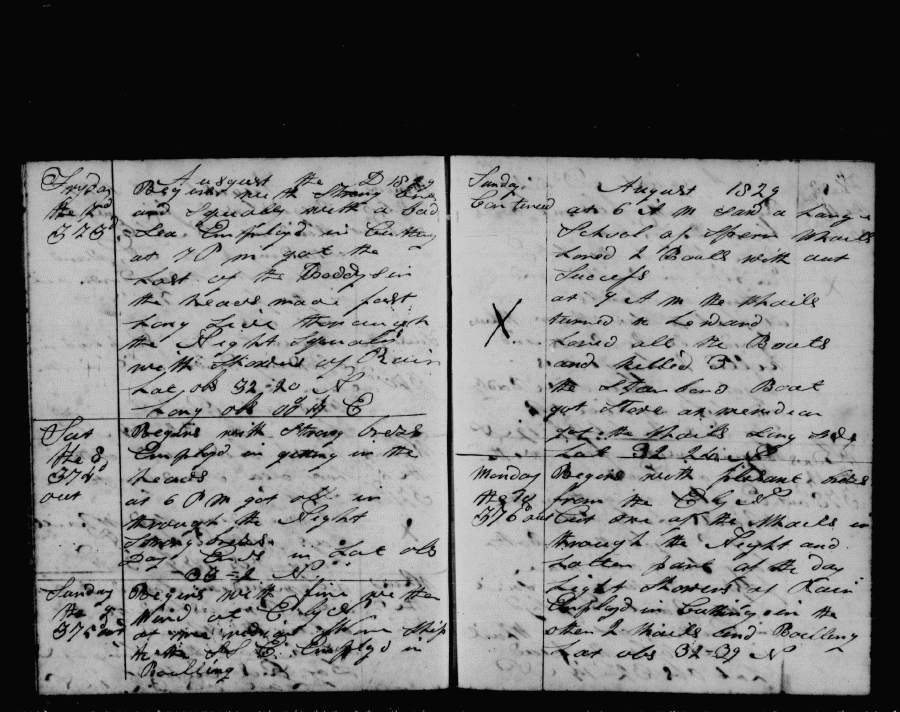 August the D 1829
Fryday
the 7d
373d
Begins with Strong bre
and Squally with a bad
Sea Employd in Cutting
at 7 P m got the
Last of the Boddys in
the heads made fast
Long Side through
the Night Squals
with Showers of Rain
Lat obs 32-20 N
Long obs E
Sat
the 8
374d
out
Begins with Strong brezes
Employd in geting in the
heads
at 6 P M got all in
through the Night
Strong brezes
Day Ends in Lat obs
N
Sunday
the 9
375 out
Begins with fine wether
Wind at E
at meridian Ship
to the S E Employd in
Boulling
Sunday
Continued
August 1829
at 6 A m Saw a Large
School of Sperm Whails
Lored 2 Boats with out
Success
at 9 A m the Whails
turned to Leward
Lored all the Boats
and killed 3
the Starboard Boat
got Stove at meridian
got the Whails Long Side
Lat 32 N
X
Monday
the 10
376 out
Begins with plesant brezes
from the E by N
Cut one of the Whails in
through the Night and
Latter part of the day
Light Showers of Rain
Employd in Cutting in the
other 2 Whails and Boulling
Lat obs 32-39 N